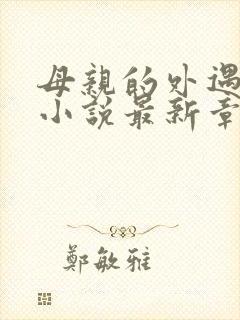 母親的外遇
小說最新章
鄭敏雅